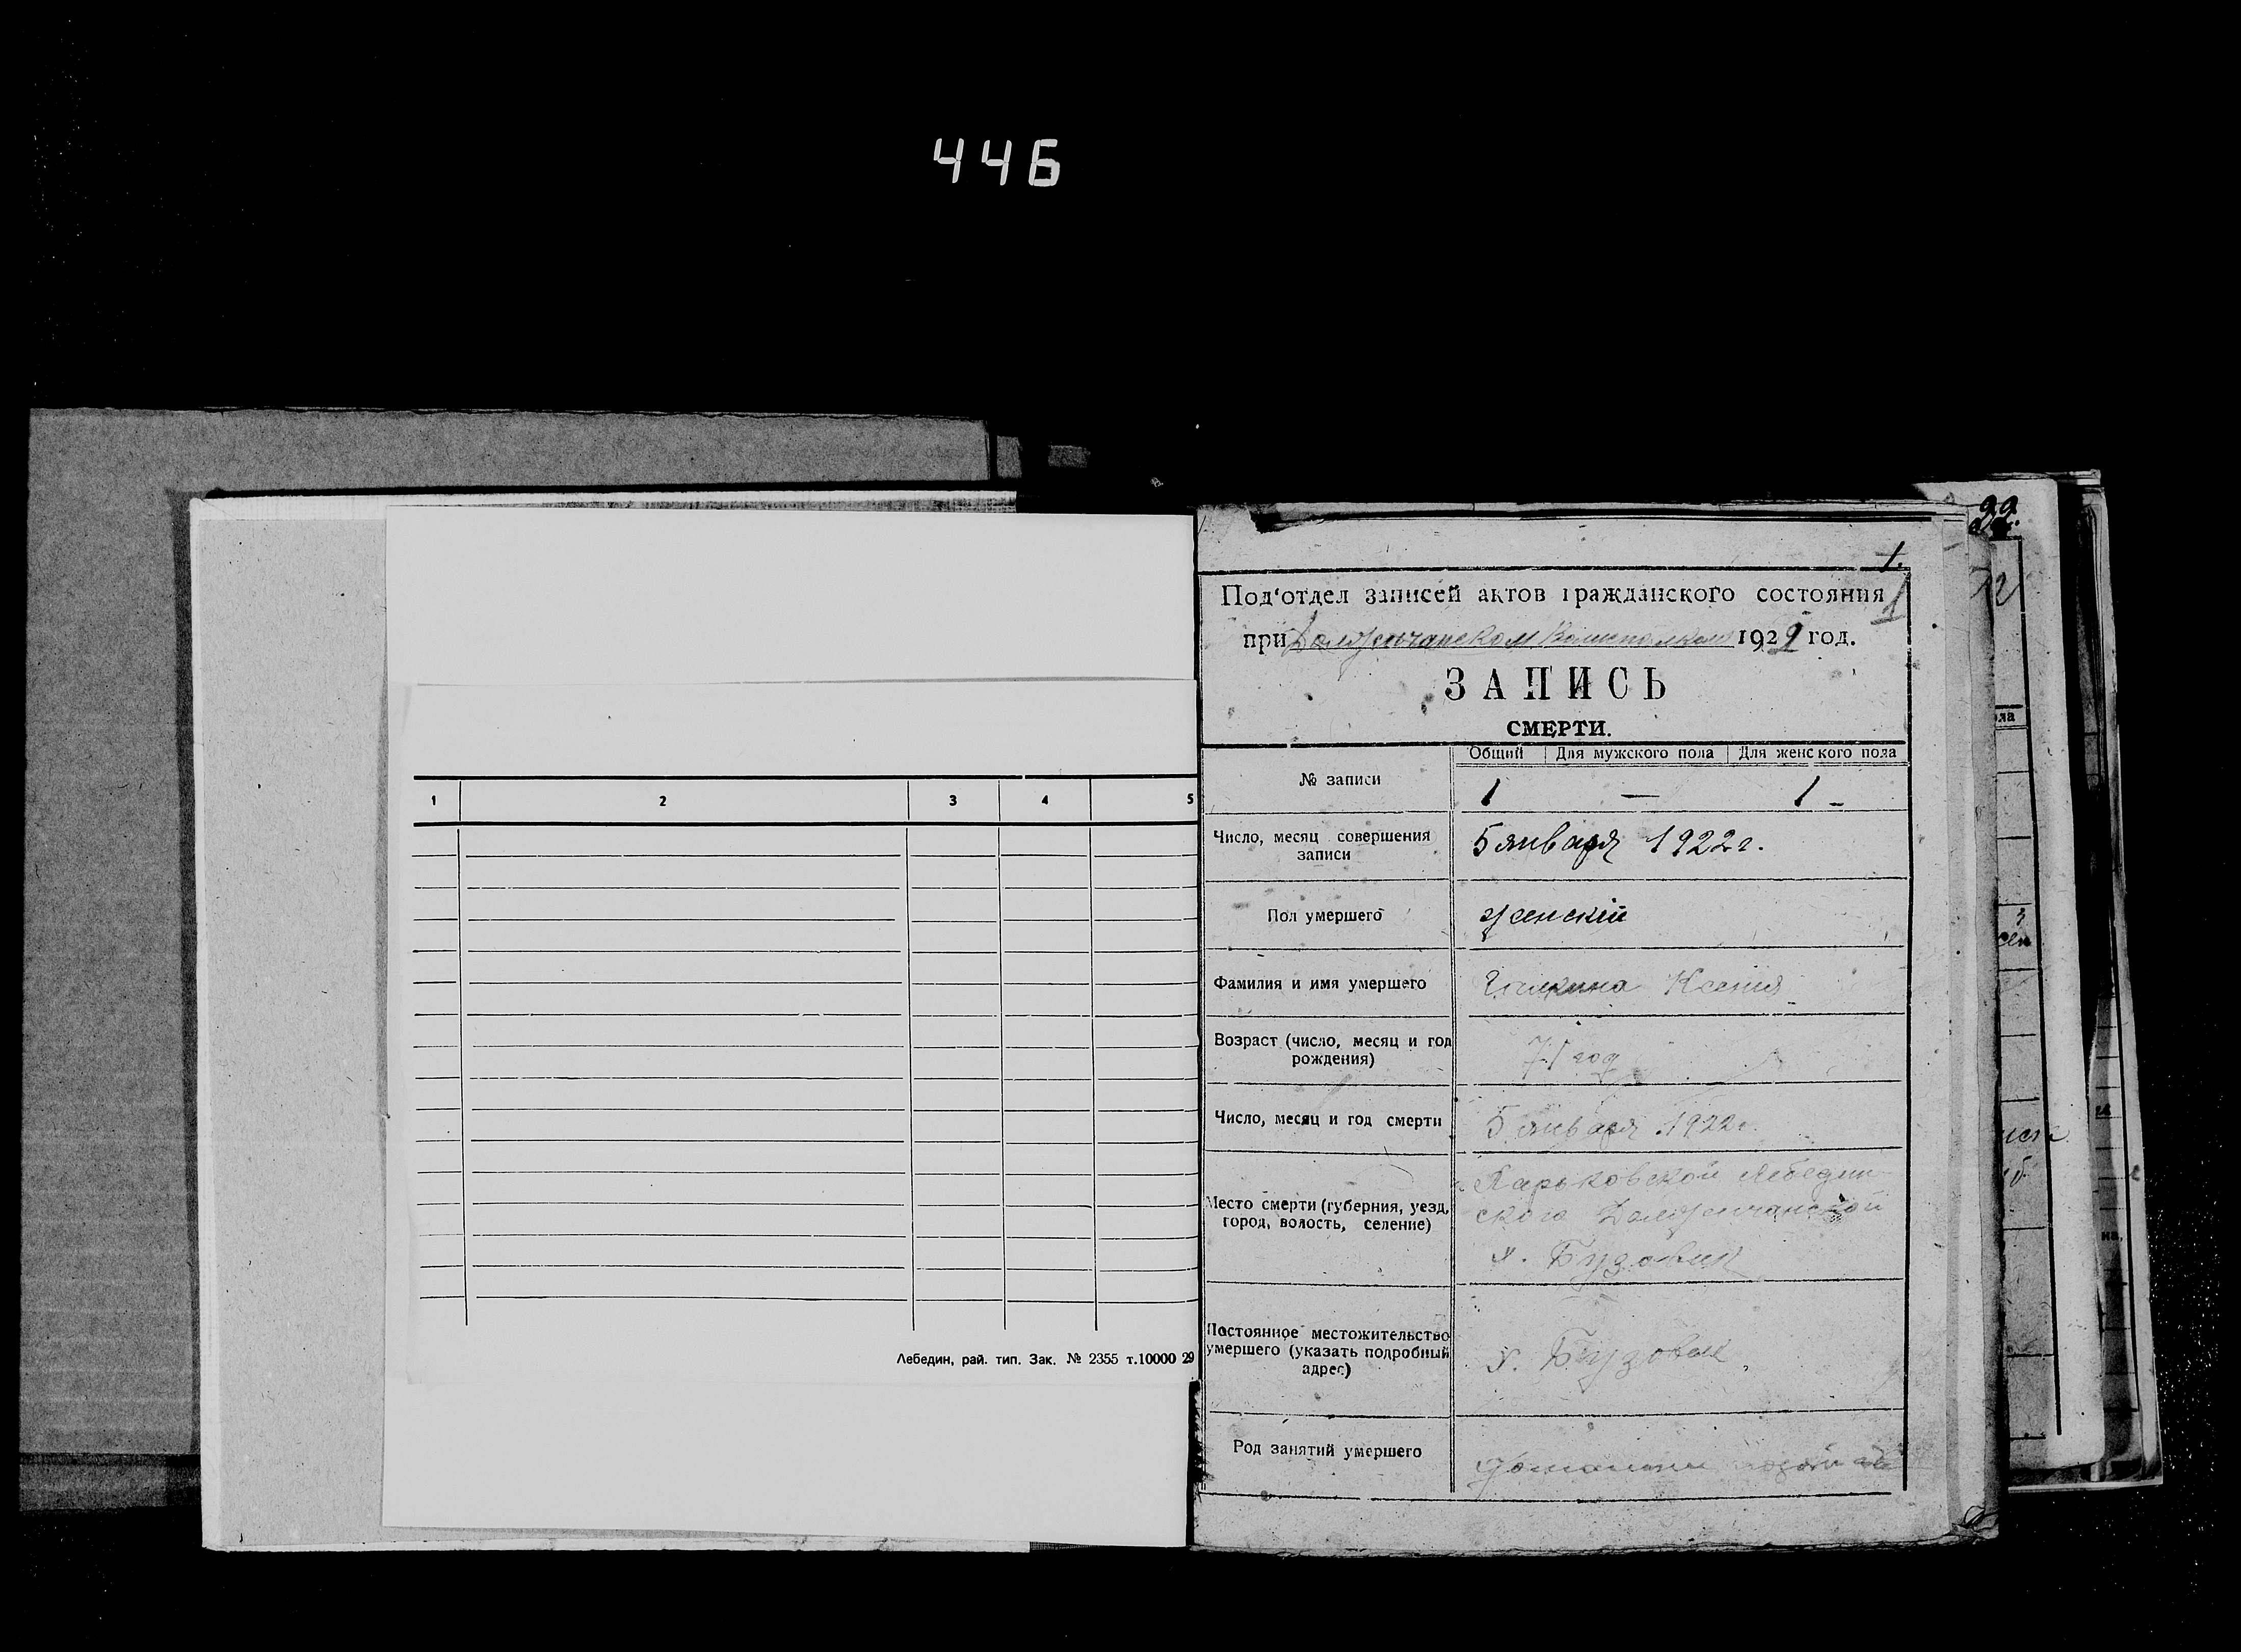 446
22.
1.
1
Под‘отдел записей актов гражданского состояния
при Должичанском Волисполкоме 1922 год.
ЗАПИСЬ
СМЕРТИ.
Общий Для мужского пола Для женского пола
№ записи 1 — 1 -
Число, месяц совершения
записи
5 января 1922 г.
Пол умершего женскій
Фамилия и имя умершего Ксения
Возраст (число, месяц и год
рождения)
71 год
Число, месяц и год смерти 5 января 1922 г.
Место смерти (губерния, уезд,
город, волость, селение)
Харьковской Лебедин
ского
х.
Постоянное местожительство
умершего (указать подробный
адрес)
х.
Род занятий умершего
1 2 3 4 5
Лебедин, рай. тип. Зак. № 2355 т.10000 29